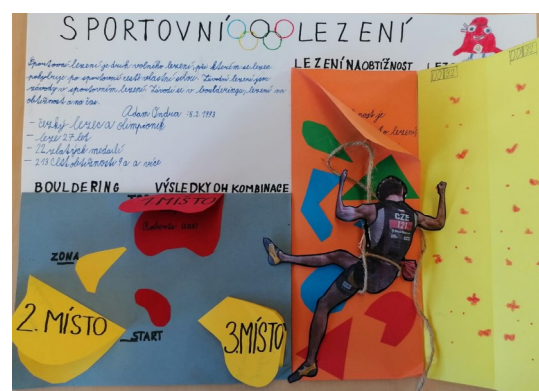 SPORTOVNÍ LEZENÍ
Sportovní lezení je druh volného lezení, při kterém se lezec
pohybuje po sportovní cestě vlastní silou. Závodní lezení jsou
závody v sportovním lezení. Závodí se v boulderingu, lezení na
obtížnost a na čas.
Adam Ondra 5.2.1993
- český lezec a olympionik
- leze 27 let
- 22 zlatých medailí
- obtížnosti 9a a více
LEZENÍ NA OBTÍŽNOST
LEZ
BOULDERING
VÝSLEDKY OH KOMBINACE
1. MÍSTO
ZONA
2. MÍSTO
START
3. MÍSTO
CZE
121